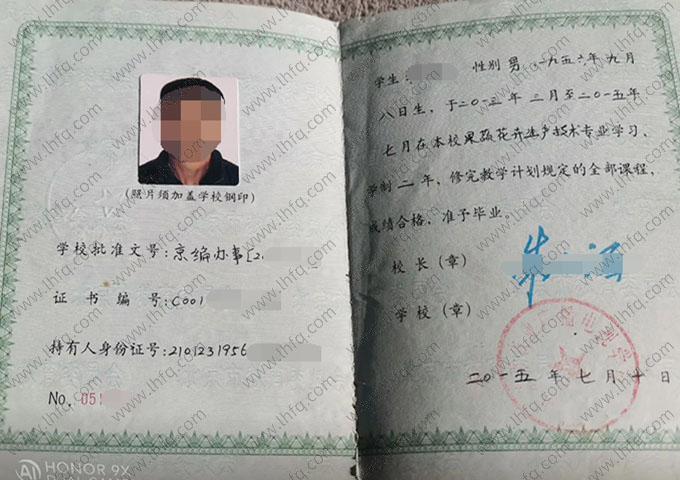 (照片须加盖学校钢印)
学校批准文号:京编办事[2
证书编号:C001
持有人身份证号:2101231956
No. 051
学生: 性别 男,一九五六年九月
八日生,于二〇一三年三月至二〇一五年
七月在本校果蔬花卉生产技术专业学习,
学制二年,修完教学计划规定的全部课程,
成绩合格,准予毕业。
校长(章)
学校(章)
二〇一五年七月十日
HONOR 9X
DUAL CAM
www.lhfq.com